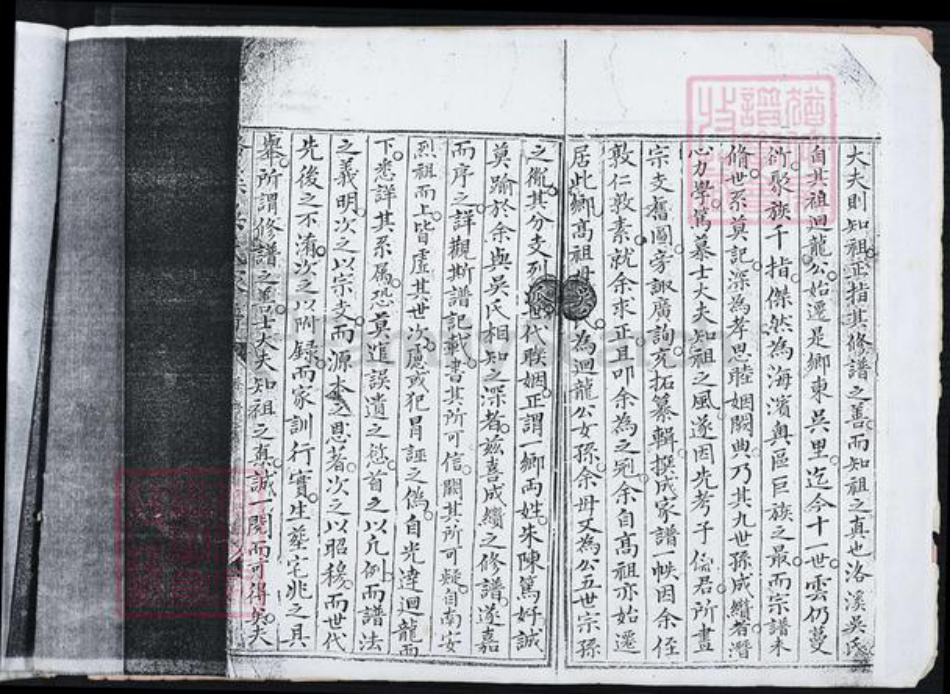 大夫則知祖正指其修譜之善而知祖之真也洛溪吳氏
自其祖迴龍公始遷是鄉東吳里迄今十一世雲仍蔓
衍聚族千指傑然為海濱奧區巨族之最而宗譜未
脩世系莫記深為孝思睦姻闕典乃其九世孫成纘者潛
心力學篤慕士大夫知祖之風遂因先考子俗君所畫
宗支舊圖旁諏廣詢充拓纂輯撰成家譜一帙因余侄
敦仁敦素就余求正且叩余為之冠余自高祖亦始遷
居此鄉高祖母 為迴龍公女孫余母又為公五世宗孫
之 其分支列 代聯姻正謂一鄉両姓朱陳篤好誠
莫踰於余與吳氏相知之深者茲喜成纘之修譜遂嘉
而序之詳觀斯譜記載書其所可信闕其所可疑自南安
烈祖而上皆虛其世次慮或犯冒誣之偽自光達迴龍而
下悉詳其系属恐莫進誤遺之愆首之以凡例而譜法
之義明次之以宗支而源本之思著次之以昭穆而世代
先後之不淆次之以附録而家訓行實生塋宅兆之具
舉所謂修譜之善士大夫知祖之真誠一閱而可得矣夫